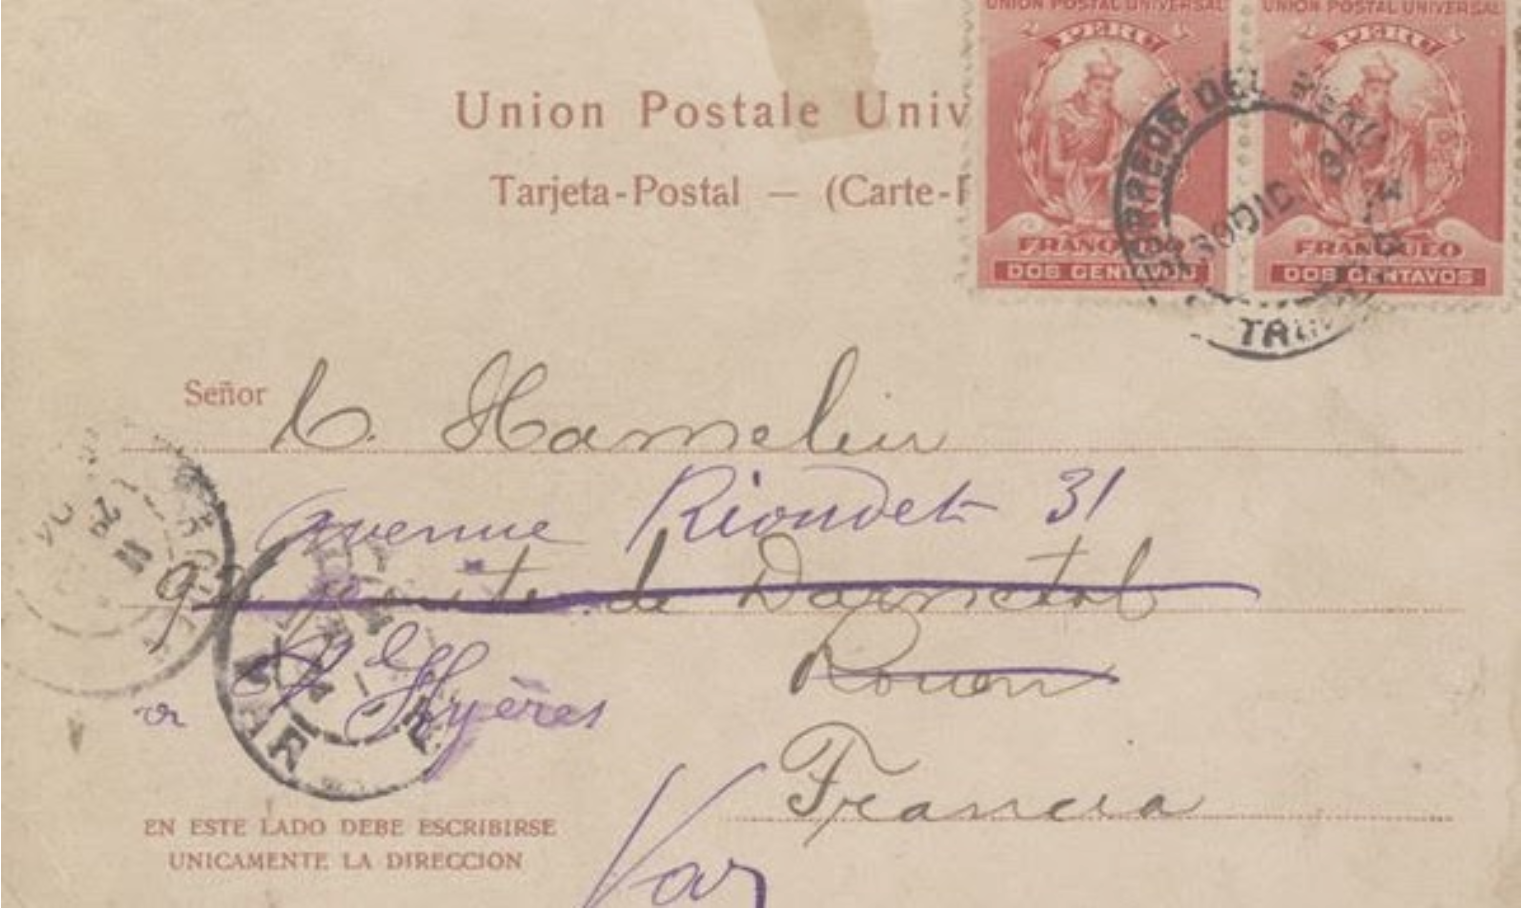 UNION POSTAL UNIVERSAL UNION POSTAL UNIVERSAL
PERU PERU
Union Postale Univ
Tarjeta-Postal — (Carte-
CORREOS DEL PERU
30 DIC
FRANQUEO FRANQUEO
DOS CENTAVOS DOS CENTAVOS
Señor L. Hamelin
avenue Riondet 31
route de Darnetal
Hyères
Rouen
Francia
EN ESTE LADO DEBE ESCRIBIRSE
UNICAMENTE LA DIRECCION
Var